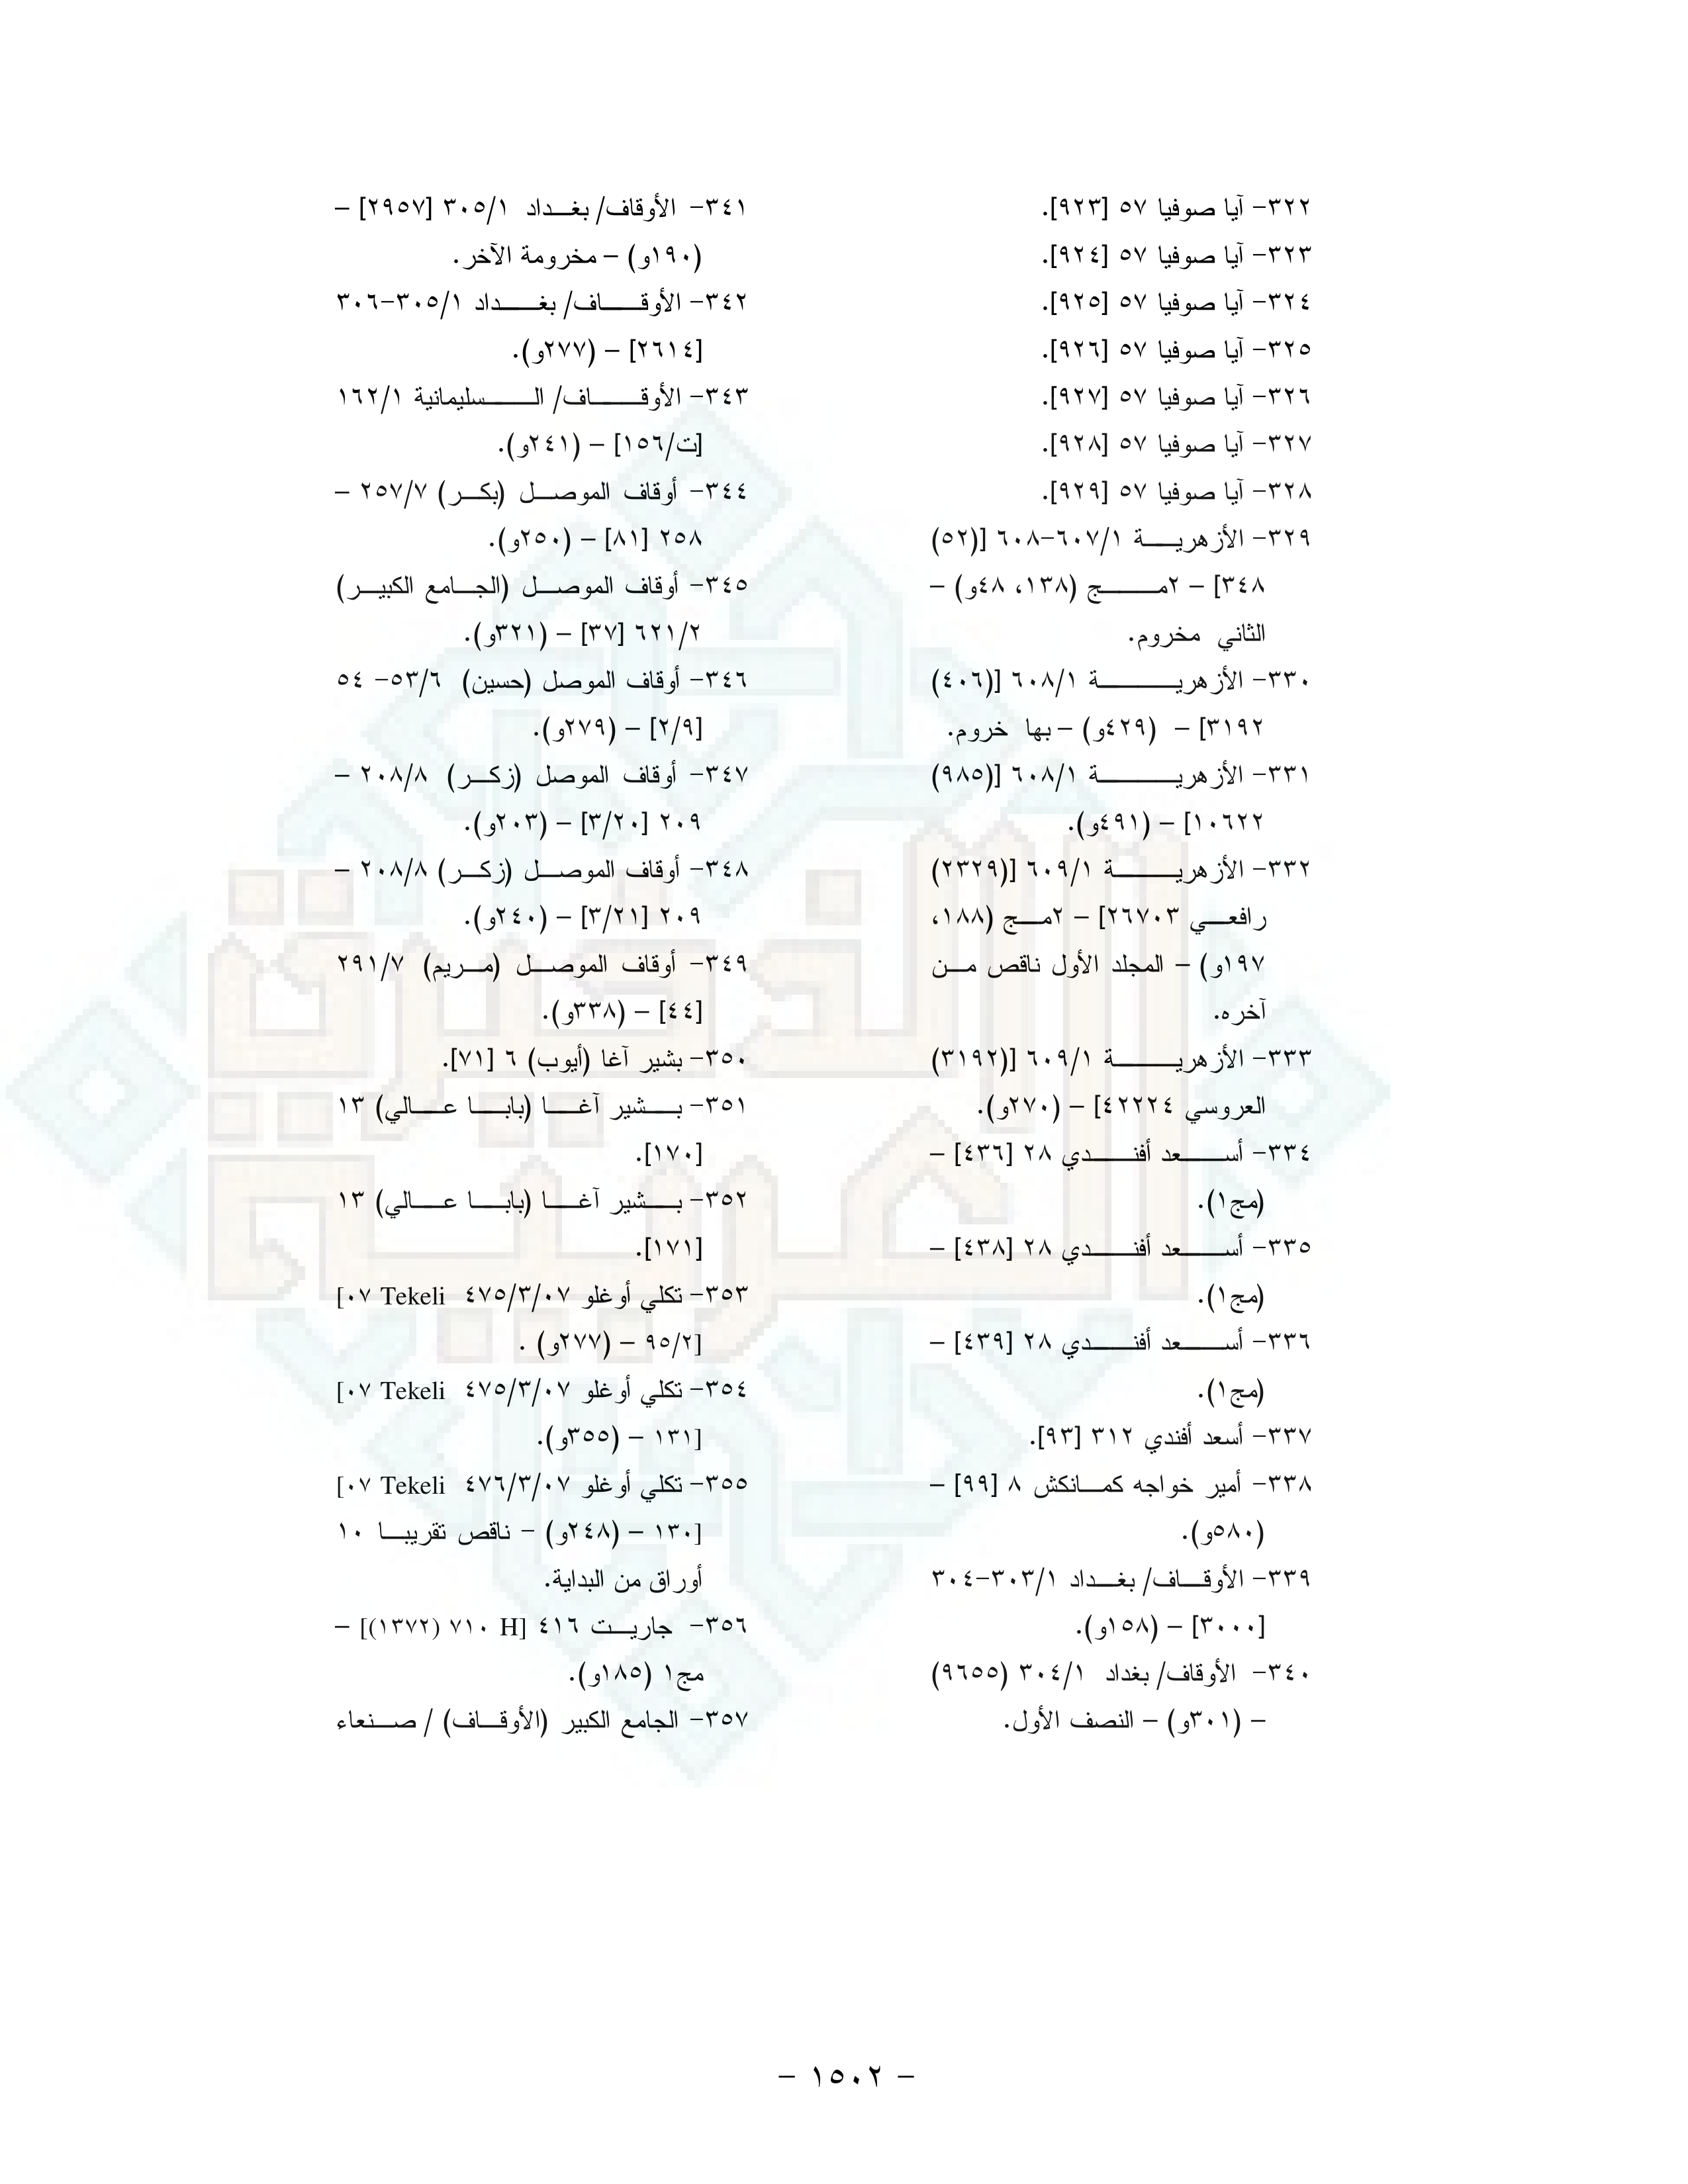 ٣٢٢- آيا صوفيا ٥٧ [٩٢٣].
٣٢٣- آيا صوفيا ٥٧ [٩٢٤].
٣٢٤- آيا صوفيا ٥٧ [٩٢٥].
٣٢٥- آيا صوفيا ٥٧ [٩٢٦].
٣٢٦- آيا صوفيا ٥٧ [٩٢٧].
٣٢٧- آيا صوفيا ٥٧ [٩٢٨].
٣٢٨- آيا صوفيا ٥٧ [٩٢٩].
٣٢٩- الأزهرية ٦٠٧/١-٦٠٨ [(٥٢)
٣٤٨] – ٢مج (١٣٨، ٤٨و) –
الثاني مخروم.
٣٣٠- الأزهرية ٦٠٨/١ [(٤٠٦)
٣١٩٢] – (٤٢٩و) – بها خروم.
٣٣١- الأزهرية ٦٠٨/١ [(٩٨٥)
١٠٦٢٢] – (٤٩١و).
٣٣٢- الأزهرية ٦٠٩/١ [(٢٣٢٩)
رافعي ٢٦٧٠٣] – ٢مج (١٨٨،
١٩٧و) – المجلد الأول ناقص من
آخره.
٣٣٣- الأزهرية ٦٠٩/١ [(٣١٩٢)
العروسي ٤٢٢٢٤] – (٢٧٠و).
٣٣٤- أسعد أفندي ٢٨ [٤٣٦] –
(مج١).
٣٣٥- أسعد أفندي ٢٨ [٤٣٨] –
(مج١).
٣٣٦- أسعد أفندي ٢٨ [٤٣٩] –
(مج١).
٣٣٧- أسعد أفندي ٣١٢ [٩٣].
٣٣٨- أمير خواجه كمانكش ٨ [٩٩] –
(٥٨٠و).
٣٣٩- الأوقاف/ بغداد ٣٠٣/١-٣٠٤
[٣٠٠٠] – (١٥٨و).
٣٤٠- الأوقاف/ بغداد ٣٠٤/١ (٩٦٥٥)
– (٣٠١و) – النصف الأول.
٣٤١- الأوقاف/ بغداد ٣٠٥/١ [٢٩٥٧] –
(١٩٠و) – مخرومة الآخر.
٣٤٢- الأوقاف/ بغداد ٣٠٥/١-٣٠٦
[٢٦١٤] – (٢٧٧و).
٣٤٣- الأوقاف/ السليمانية ١٦٢/١
[ت/١٥٦] – (٢٤١و).
٣٤٤- أوقاف الموصل (بكر) ٢٥٧/٧ –
٢٥٨ [٨١] – (٢٥٠و).
٣٤٥- أوقاف الموصل (الجامع الكبير)
٦٢١/٢ [٣٧] – (٣٢١و).
٣٤٦- أوقاف الموصل (حسين) ٥٣/٦- ٥٤
[٢/٩] – (٢٧٩و).
٣٤٧- أوقاف الموصل (زكر) ٢٠٨/٨ –
٢٠٩ [٣/٢٠] – (٢٠٣و).
٣٤٨- أوقاف الموصل (زكر) ٢٠٨/٨ –
٢٠٩ [٣/٢١] – (٢٤٠و).
٣٤٩- أوقاف الموصل (مريم) ٢٩١/٧
[٤٤] – (٣٣٨و).
٣٥٠- بشير آغا (أيوب) ٦ [٧١].
٣٥١- بشير آغا (بابا عالي) ١٣
[١٧٠].
٣٥٢- بشير آغا (بابا عالي) ١٣
[١٧١].
٣٥٣- تكلي أوغلو ٤٧٥/٣/٠٧ Tekeli ٠٧]
[٩٥/٢ – (٢٧٧و) .
٣٥٤- تكلي أوغلو ٤٧٥/٣/٠٧ Tekeli ٠٧]
[١٣١ – (٣٥٥و).
٣٥٥- تكلي أوغلو ٤٧٦/٣/٠٧ Tekeli ٠٧]
[١٣٠ – (٢٤٨و) – ناقص تقريبا ١٠
أوراق من البداية.
٣٥٦- جاريت ٤١٦ [H ٧١٠ (١٣٧٢)] –
مج١ (١٨٥و).
٣٥٧- الجامع الكبير (الأوقاف) / صنعاء
الذخيرة
العربية
– ١٥٠٢ –